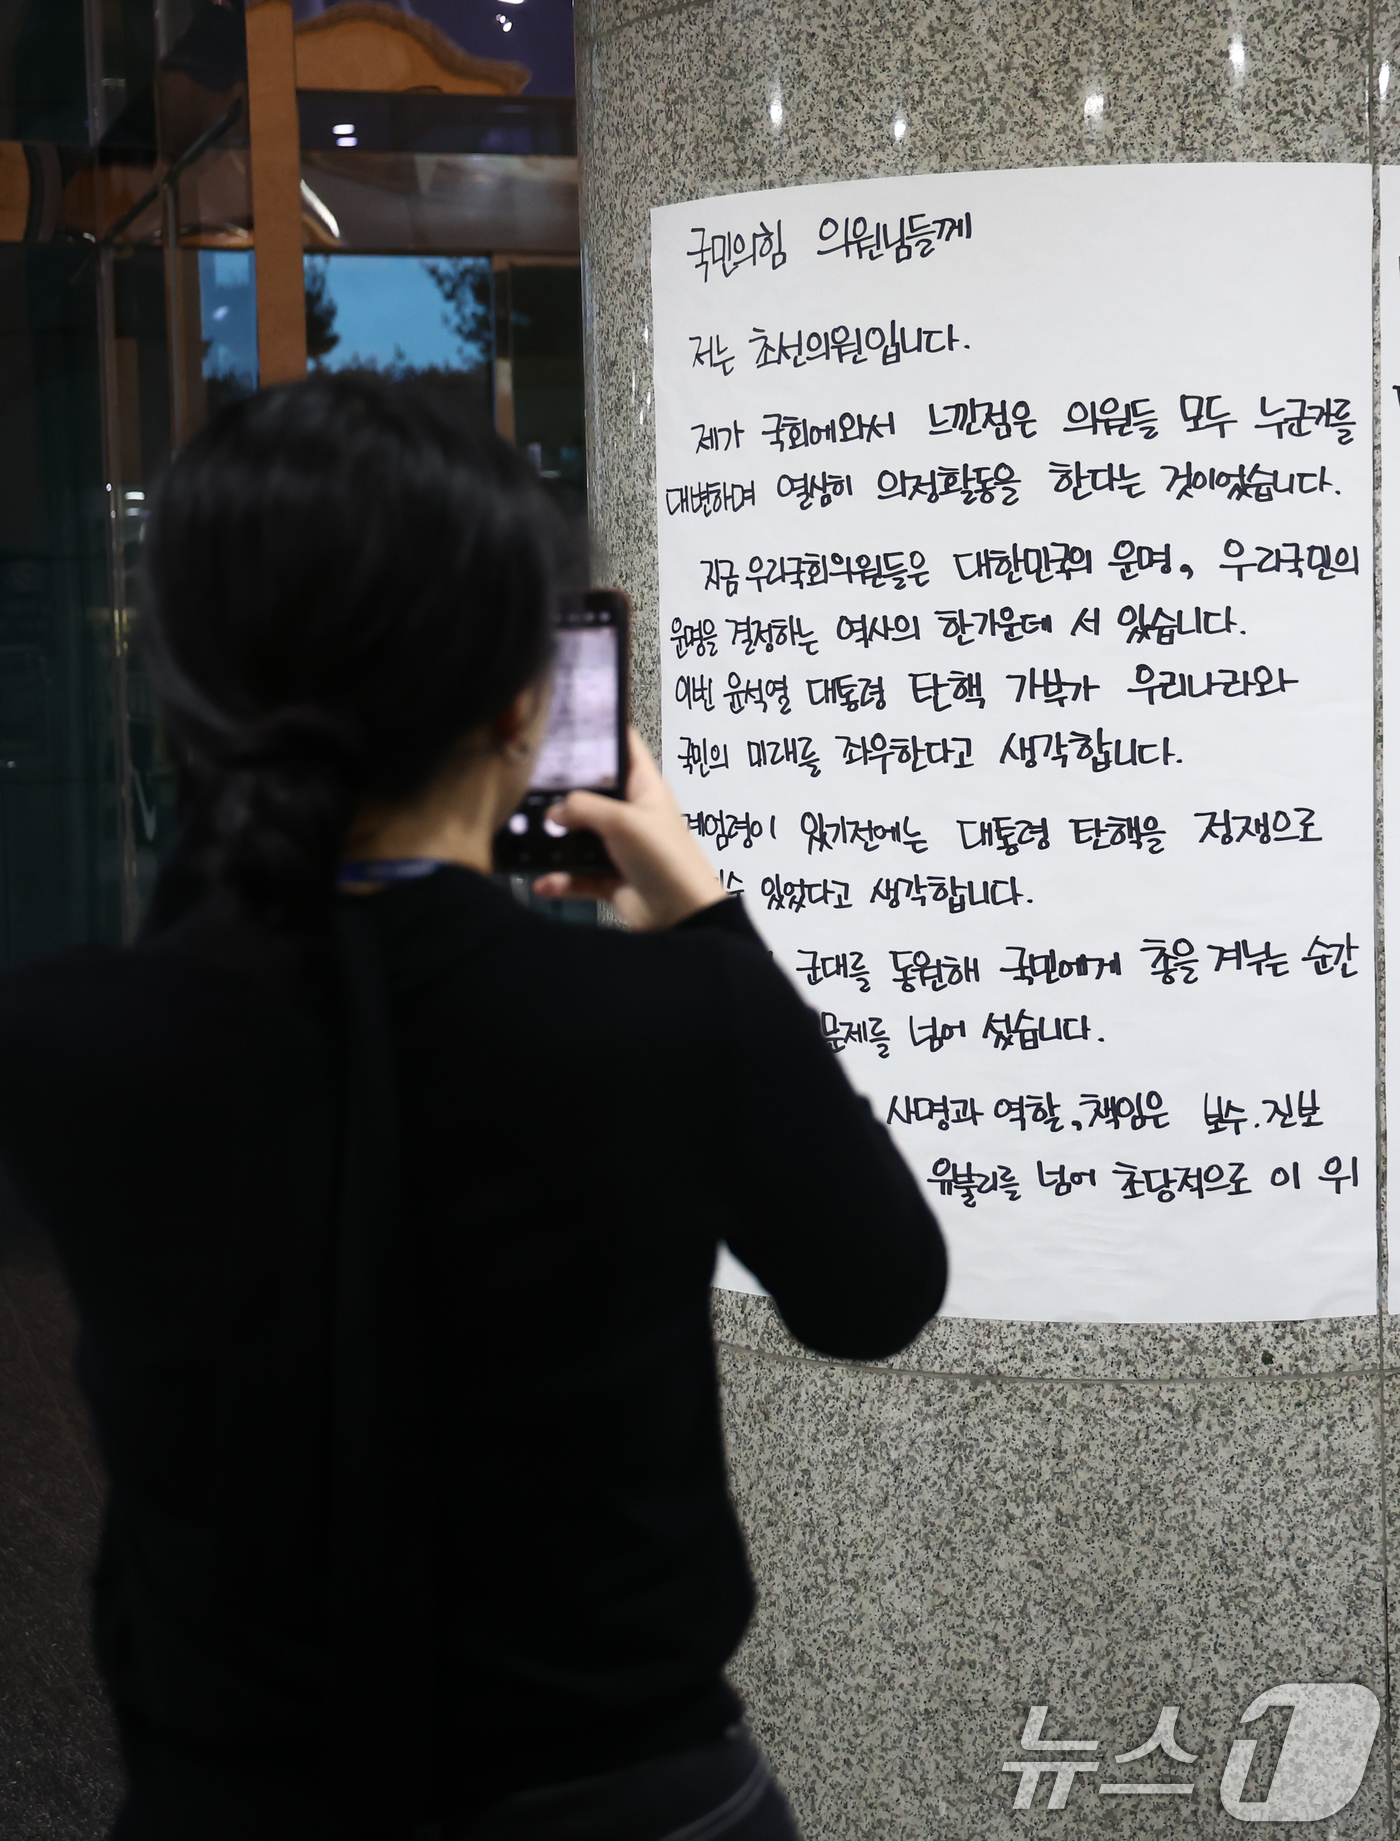 국민의힘 의원님들께
저는 초선의원입니다.
제가 국회에와서 느낀점은 의원들 모두 누군가를
대변하며 열심히 의정활동을 한다는 것이었습니다.
지금 우리국회의원들은 대한민국의 운명, 우리국민의
운명을 결정하는 역사의 한가운데 서 있습니다.
이번 윤석열 대통령 탄핵 가부가 우리나라와
국민의 미래를 좌우한다고 생각합니다.
계엄령이 있기전에는 대통령 탄핵을 정쟁으로
있었다고 생각합니다.
군대를 동원해 국민에게 총을 겨누는 순간
문제를 넘어 섰습니다.
사명과 역할, 책임은 보수.진보
유불리를 넘어 초당적으로 이 위
뉴스1